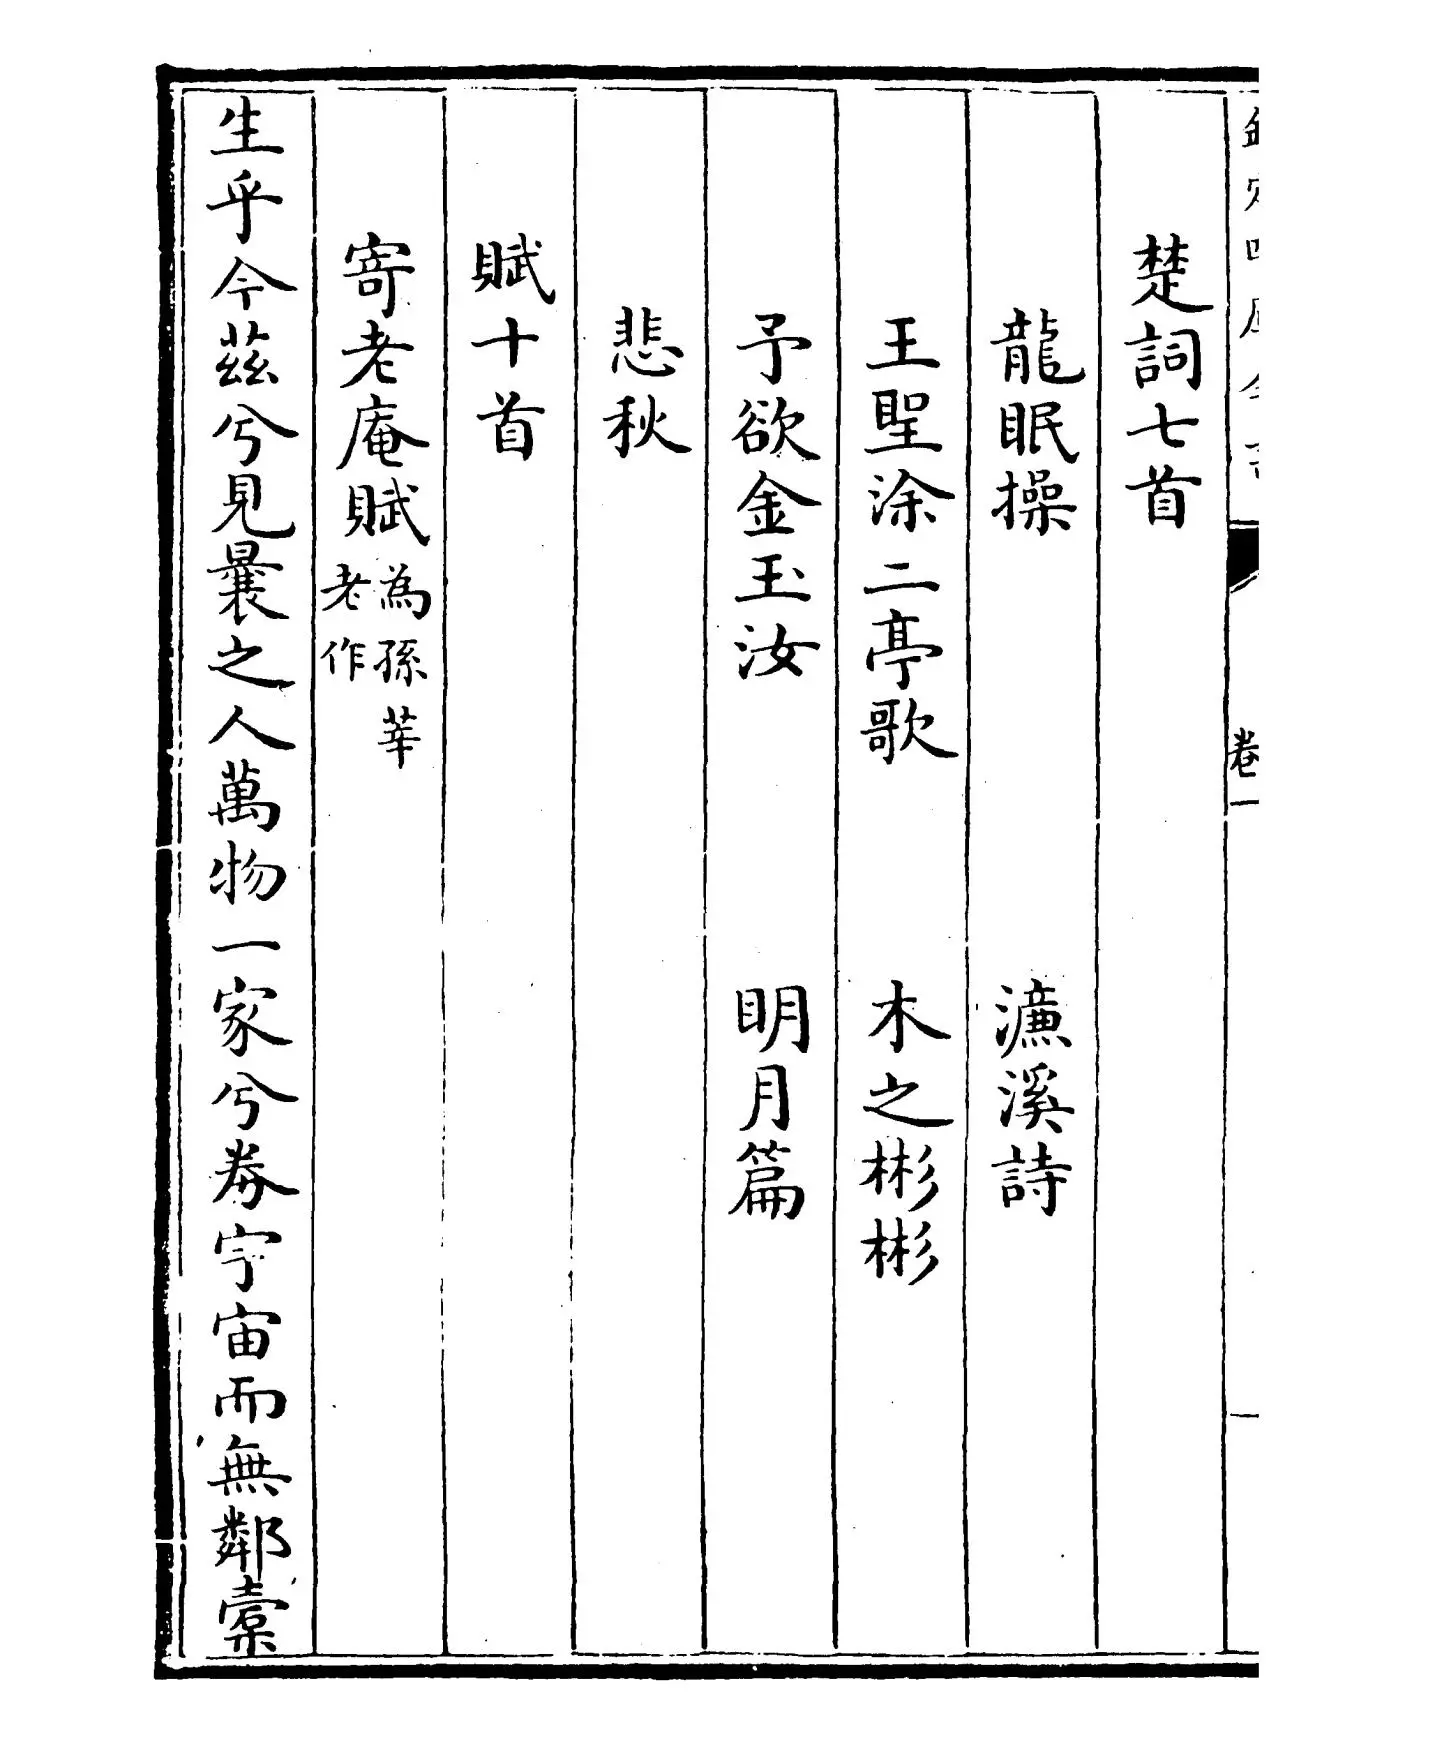 楚詞七首
龍眠操 濂溪詩
王聖涂二亭歌 木之彬彬
予欲金玉汝 明月篇
悲秋
賦十首
寄老庵賦為孫莘老作
生乎今茲兮見曩之人萬物一家兮券宇宙而無鄰橐
卷一